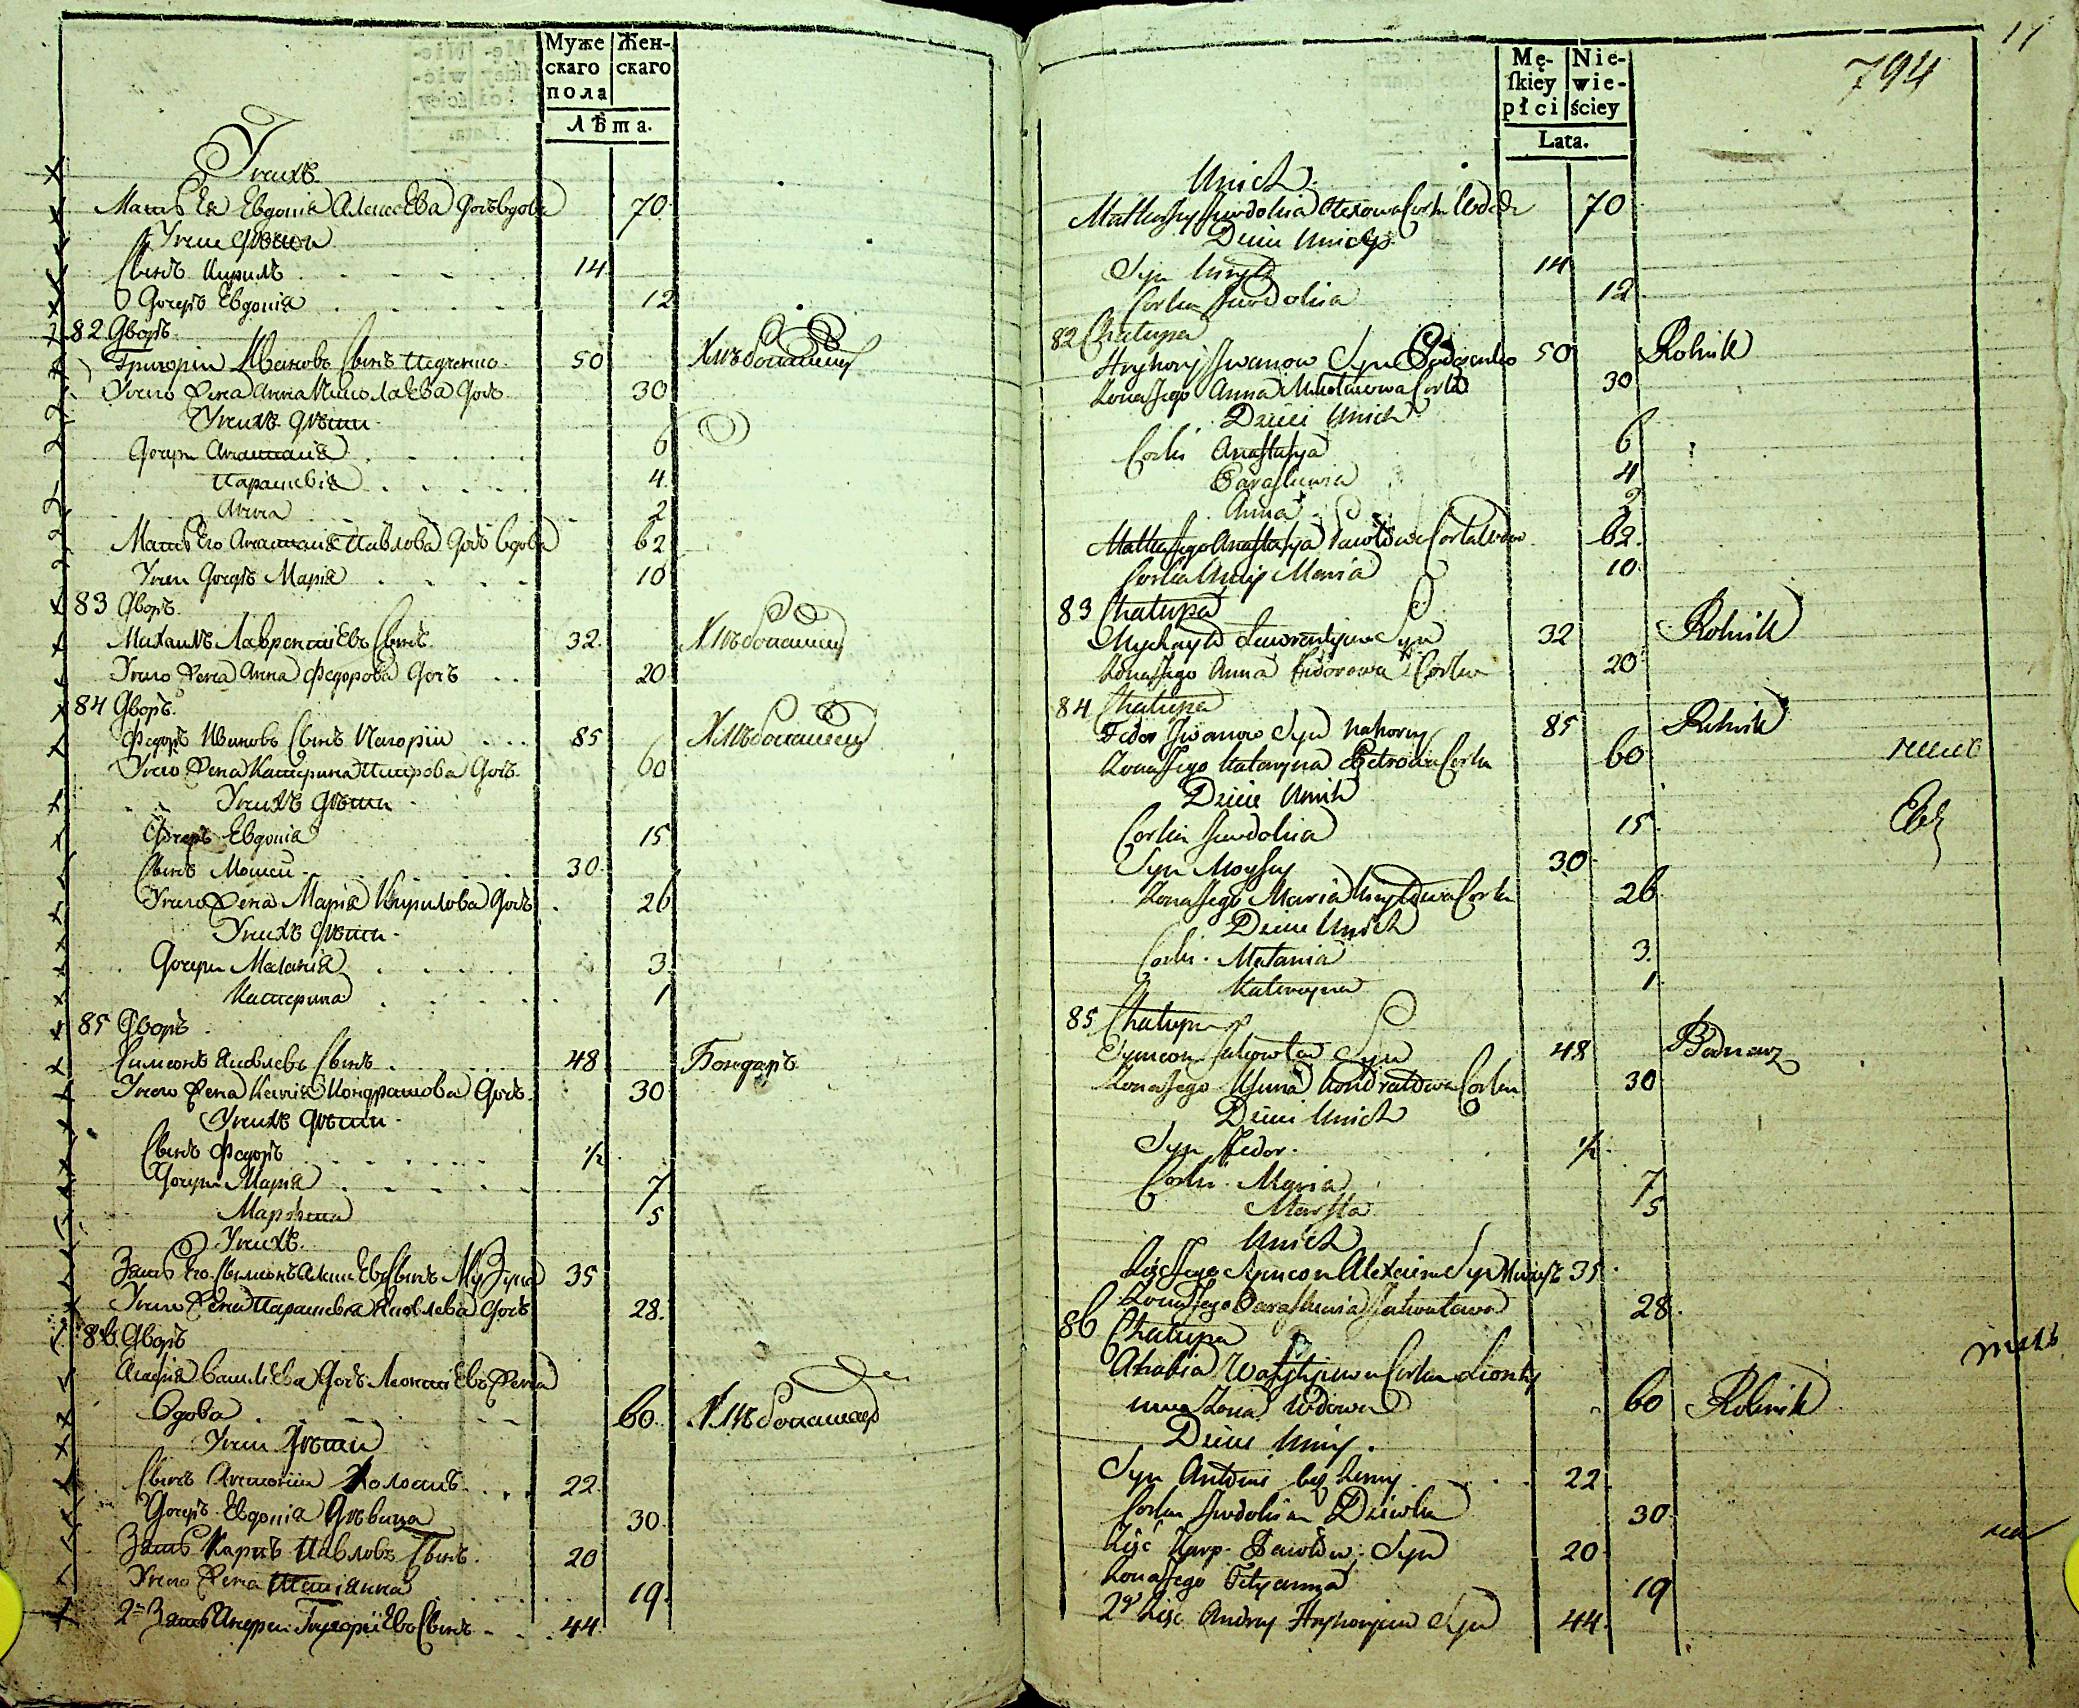 Муже
скаго
пола
Жен-
скаго
Лѣта.
Унихъ
Мать Ея Евдокія Алексѣева Дочь вдова 70
Унеи Дѣти
Сынъ Кирилъ 14
Дочерь Евдокія 12
82 Дворъ
Григорій Ивановъ Сынъ 50 Хлѣбопашецъ
Унего Жена Анна Николаева Дочь 30
Унихъ Дѣти
Дочери Анастасія 6
Парасковія 4
Анна 2
Мать Его Анастасія Павлова Дочь вдова 62
Унеи Дочерь Марія 10
83 Дворъ
Михаилъ Лаврентіевъ Сынъ 32 Хлѣбопашецъ
Унего Жена Анна Федорова Дочь 20
84 Дворъ
Федоръ Ивановъ Сынъ Нагорній 85 Хлѣбопашецъ
Унего Жена Катерина Петрова Дочь 60
Унихъ Дѣти
Дочерь Евдокія 15
Сынъ Моисей 30
Унего Жена Марія Кирилова Дочь 26
Унихъ Дѣти
Дочери Меланія 3
Катерина 1
85 Дворъ
Симеонъ Яковлевъ Сынъ 48 Бондаръ
Унего Жена Ксенія Кондратова Дочь 30
Унихъ Дѣти
Сынъ Федоръ ½
Дочери Марія 7
Марѳа 5
Унихъ
Зять Его Симионъ Алексѣевъ Сынъ 35
Унего Жена Парасковія Яковлева Дочь 28
86 Дворъ
Агафія Василіева Дочь Леонтіева Жена
Вдова 60 Хлѣбопашецъ
Унеи Дѣти
Сынъ Антоній Холостъ 22
Дочерь Евдокія Дѣвица 30
Зять Карпъ Павловъ Сынъ 20
Унего Жена Татіанна 19
2й Зять Андреи Григоріевъ Сынъ 44
Mę-
ſkiey
płci
Nie-
wie-
ściey
Lata.
794
17
Unich
Matka Jey Jewdokia Alexowa Corka Wdowa 70
Dzieci Unicy
Syn Kiryło 14
Corka Jewdokia 12
82 Chałupa
Hryhory Jwanow Syn 50 Rolnik
Zona Jego Anna Mikołaiowa Corka 30
Dzieci Unich
Corki Anastasya 6
Paraskewia 4
Anna 2
Matka Jego Anastasya Pawłowa Corka Wdowa 62
Corka Uniey Maria 10
83 Chałupa
Mychayło Lawrentyiew Syn 32 Rolnik
Zona Jego Anna Fedorowa Corka 20
84 Chałupa
Fedor Jwanow Syn Nahorny 85 Rolnik
Zona Jego Kateryna Petrowa Corka 60
Dzieci Unich
Corka Jewdokia 15
Syn Moysey 30
Zona Jego Maria Kiryłowa Corka 26
Dzieci Unich
Corki Małania 3
Kateryna 1
85 Chałupa
Symeon Jakowlew Syn 48 Bednarz
Zona Jego Xenia Kondratowa Corka 30
Dzieci Unich
Syn Fedor ½
Corki Maria 7
Marfta 5
Unich
Zięc Jego Symeon Alexeiew Syn 35
Zona Jego Paraskewia Jakowlowa 28
86 Chałupa
Ahafia Wasylyiewa Corka Leonty
iewa Zona Wdowa 60 Rolnik
Dzieci Uniey
Syn Antoni bez żenny 22
Corka Jewdokia Dziewka 30
Zięć Karp Pawłow Syn 20
Zona Jego Tetyanna 19
2gi Zięc Andrey Hryhoryiew Syn 44